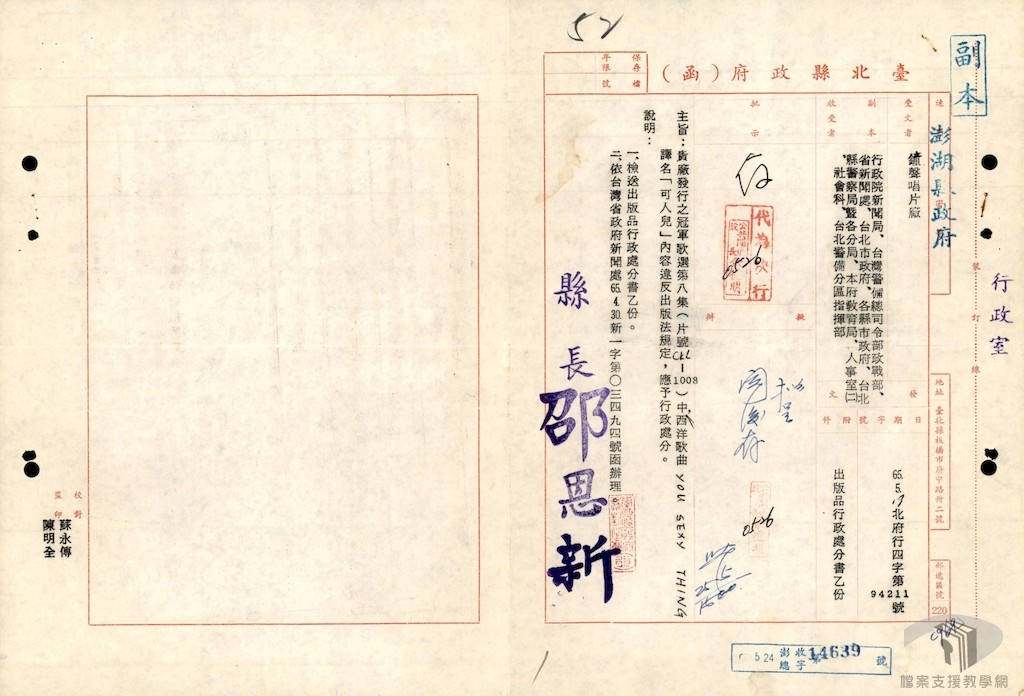 52
副本
澎湖縣政府
行政室
臺北縣政府（函）
保存年限
檔號
速
受文者
鐘聲唱片廠
副本收受者
行政院新聞局、台灣警備總司令部政戰部、
省新聞處、台北市政府、各縣市政府、台北
縣警察局暨各分局、本府教育局、人事室㈡
、社會科、台北警備分區指揮部
批示
擬辦
發文
日期
字號
附件
65.5.17北府行四字第94211號
出版品行政處分書乙份
地址 臺北縣板橋市府中路卅二號
郵遞區號 220
裝訂線
存
代為決行
0526
主旨：貴廠發行之冠軍歌選第八集（片號CLL－1008）中,西洋歌曲 YOU SEXY THING
譯名「可人兒」內容違反出版法規定，應予行政處分。
說明：
一、檢送出版品行政處分書乙份。
二、依台灣省政府新聞處65.4.30.新一字第〇三四九四號函辦理。
縣長邵恩新
擬
呈
0526
監印 陳明全
校對 蘇永傳
5 24 澎總 收字 第14639號
檔案支援教學網